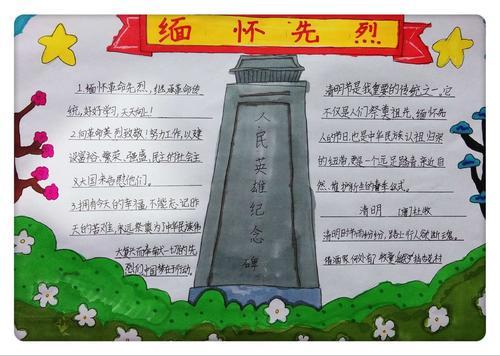 缅怀先烈
1.缅怀革命先烈,继承革命传
统,好好学习,天天向上!
2.向革命英烈致敬!努力工作,以建
设富裕、繁荣、强盛、民主的社会主
义大国来告慰他们。
3.拥有今天的幸福,不能忘记昨
天的苦难,永远祭奠为了中华民族伟
大复兴而奉献一切的先
烈们中国梦在行动。
人民英雄纪念碑
清明节是我重要的传统之一。它
不仅是人们祭奠祖先、缅怀先
人的节日,也是中华民族认祖归宗
的纽带,更是一个远足踏青亲近自
然、
清明 [唐]杜牧
清明时节雨纷纷,路上行人欲断魂。
借问酒家何处有?牧童遥指杏花村